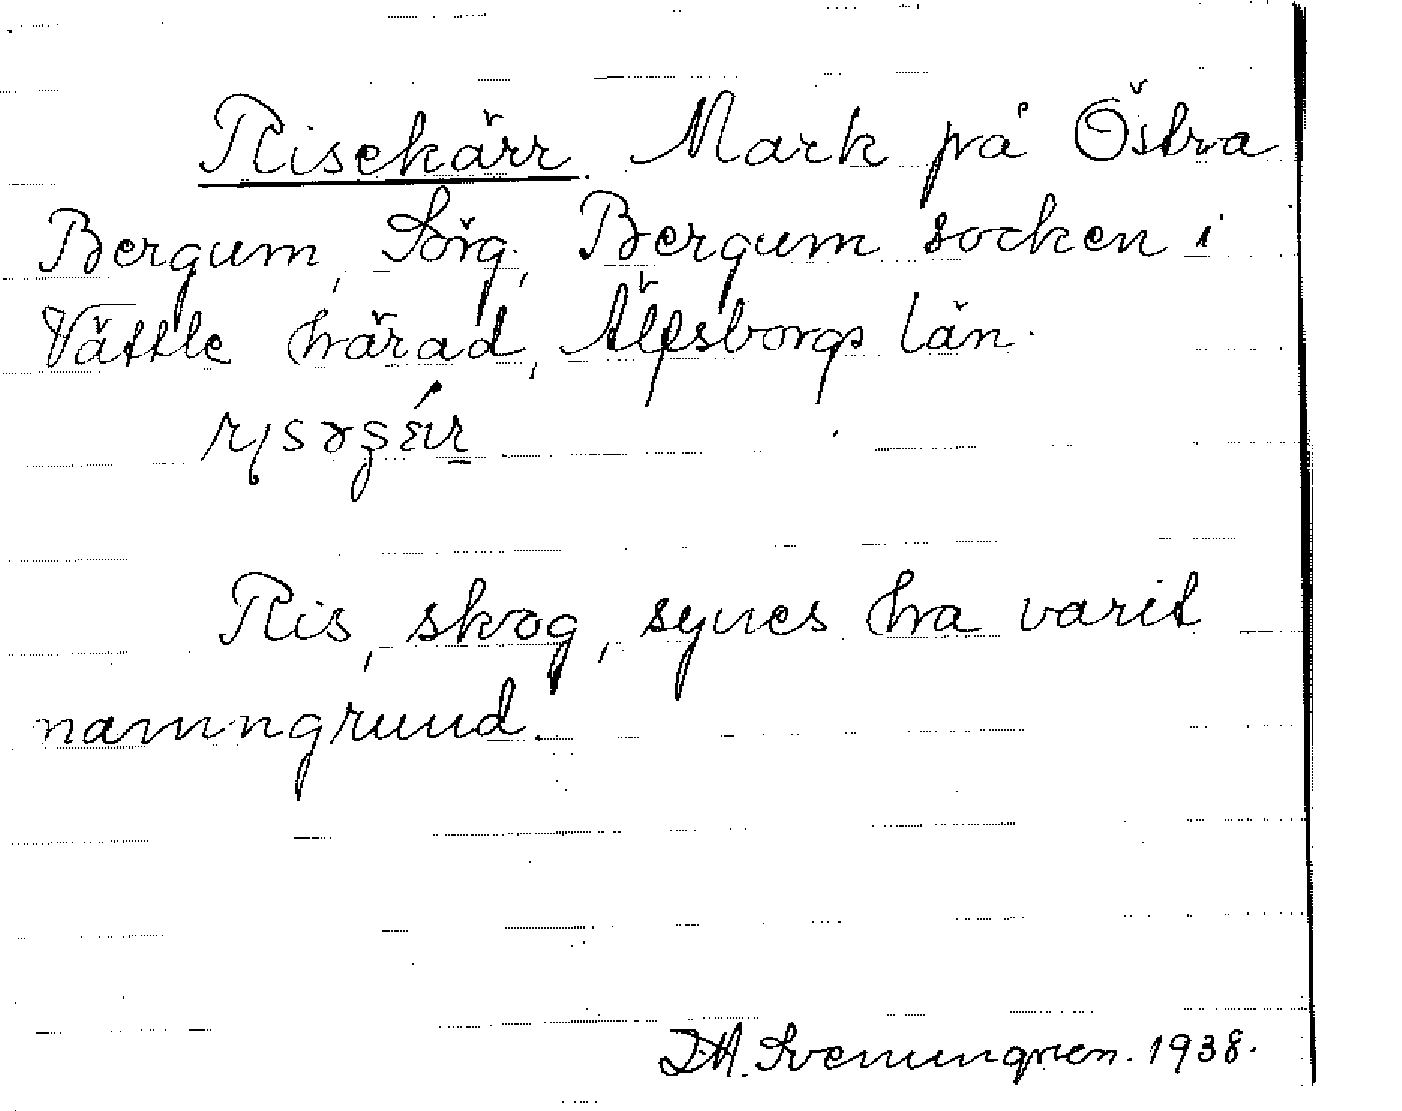 Risekärr. Mark på Östra
Bergum, Sörg, Bergum socken i
Vättle härad, Älfsborgs län.
Ris, skog, synes ha varit
namngrund.
Svenungren. 1938.